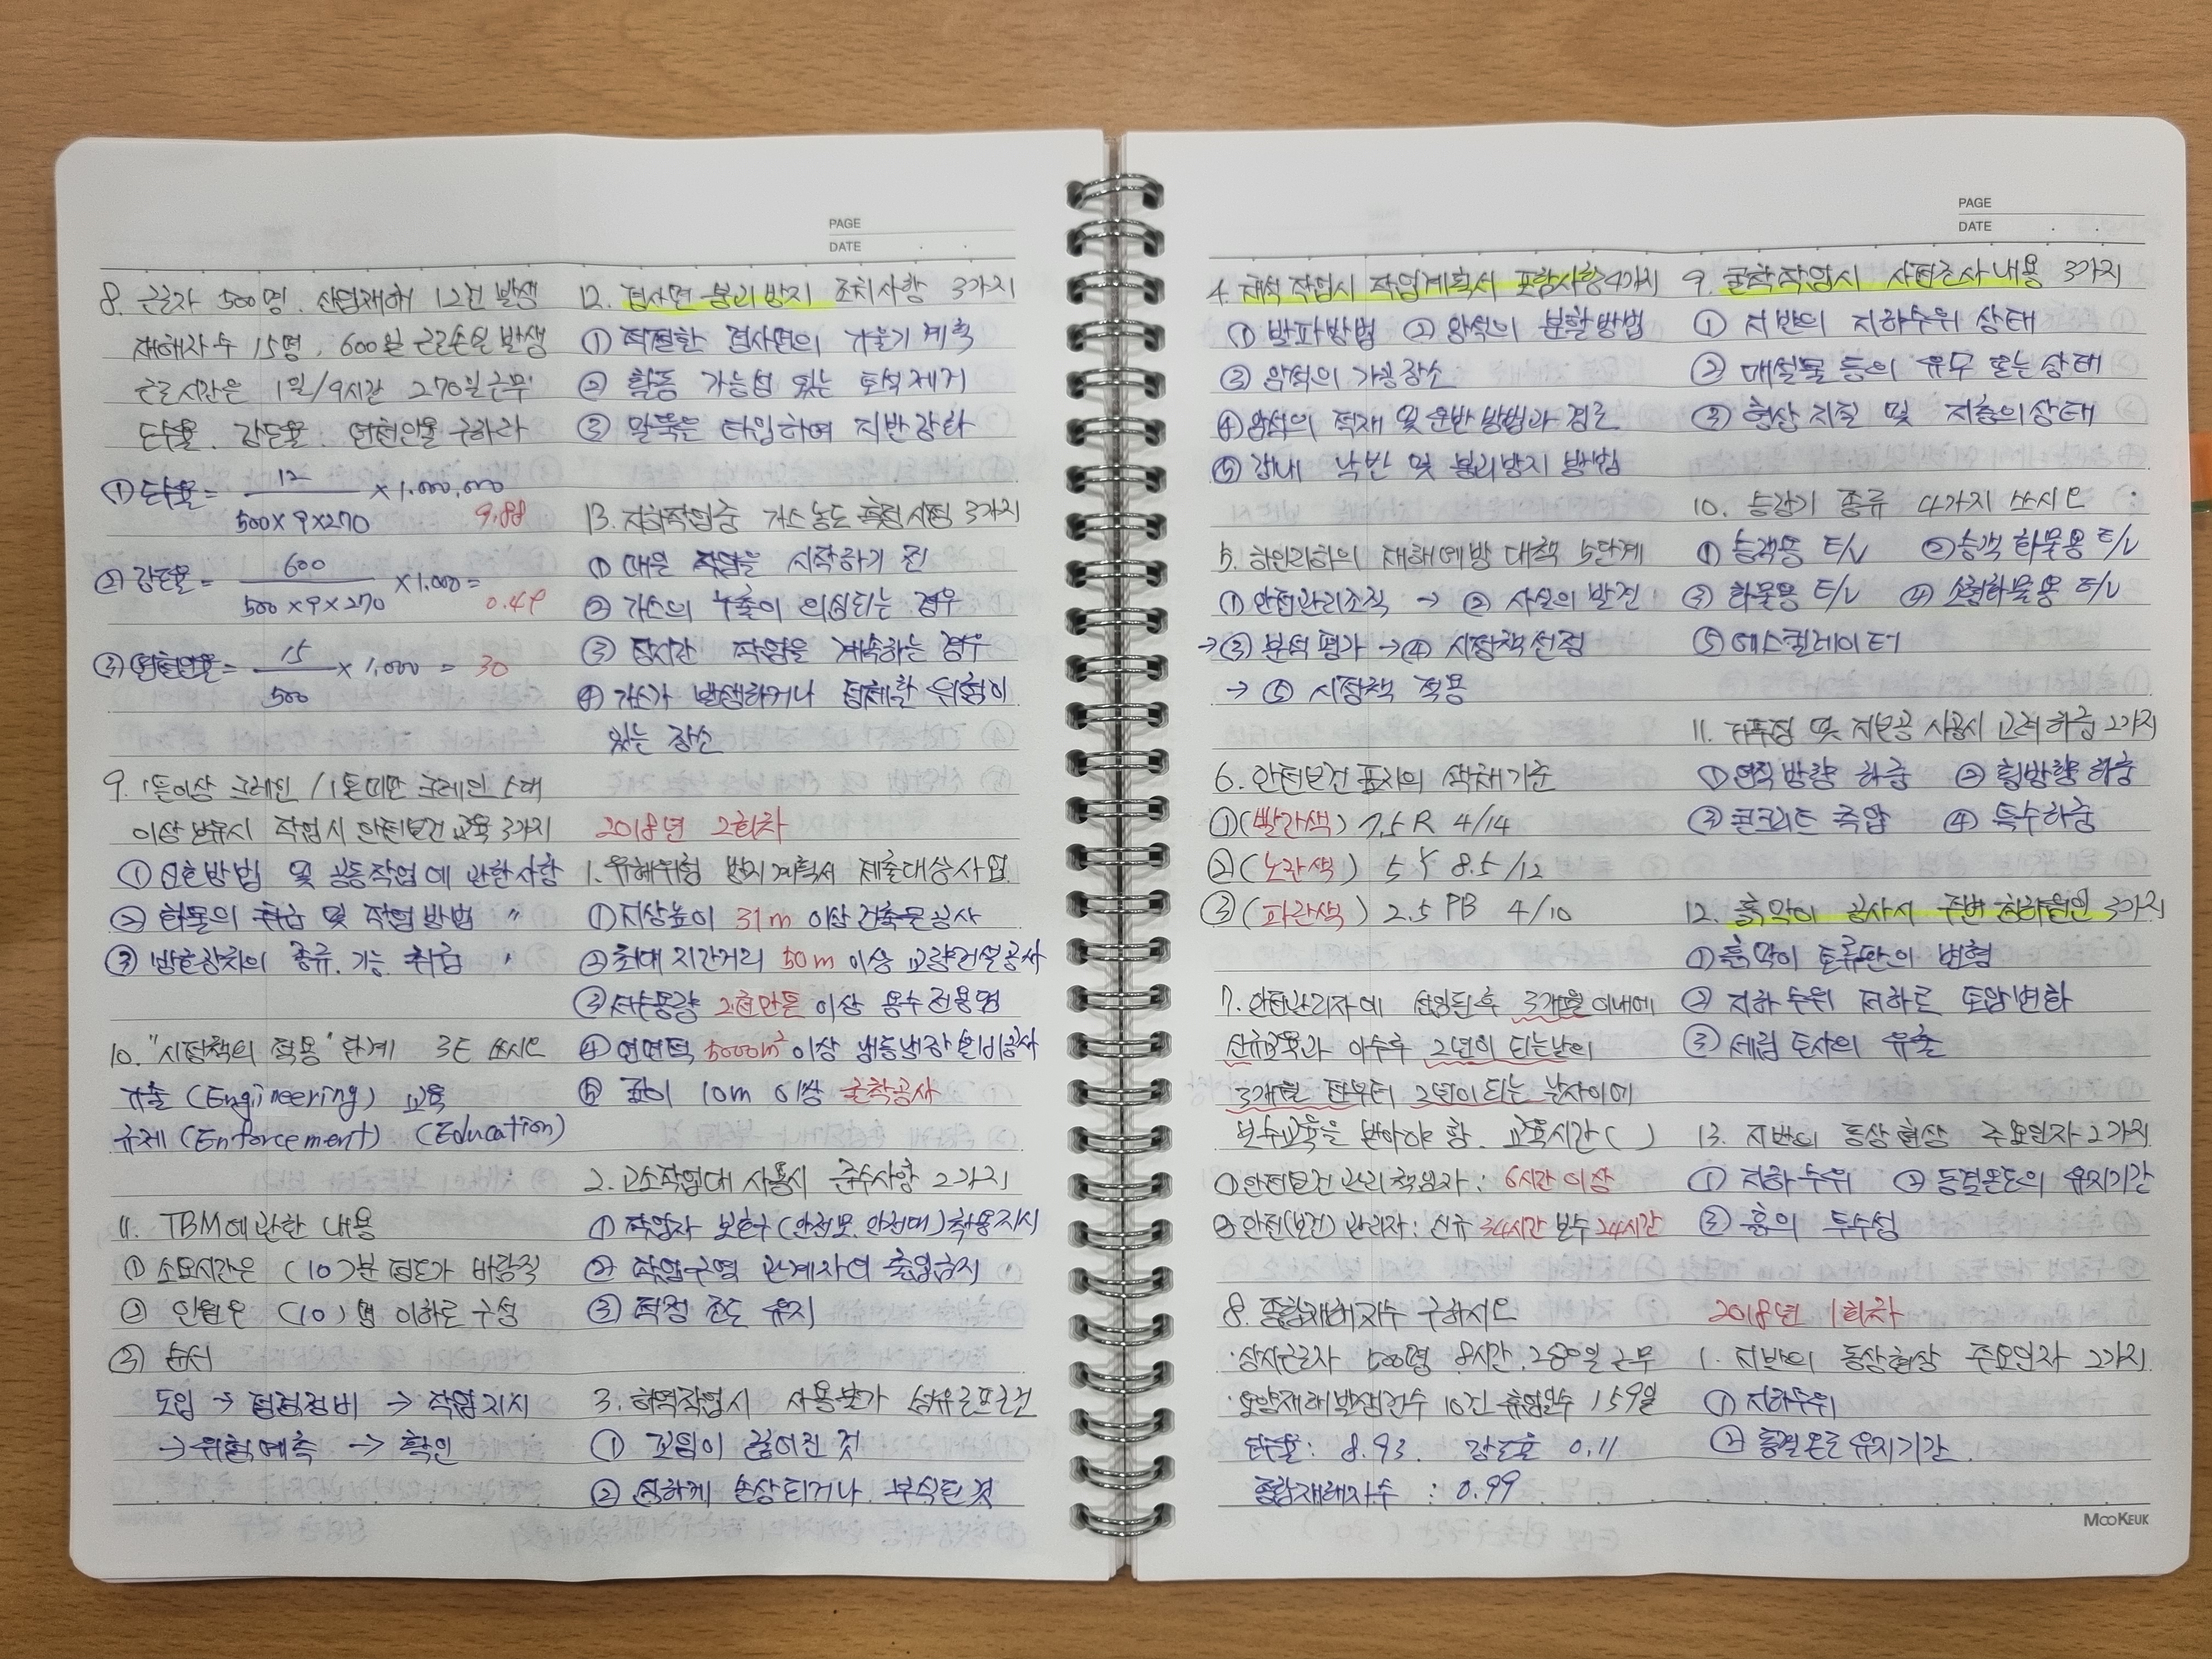 PAGE
DATE
8. 근로자 500명. 산업재해 12건 발생
재해자수 15명, 600일 근로손실 발생
근로시간은 1일/9시간 270일 근무
도수율. 강도율. 연천인율 구하라
① 도수율 = 12 / 500×9×270 × 1,000,000 9.88
② 강도율 = 600 / 500×9×270 × 1,000 = 0.49
③ 연천인율 = 15 / 500 × 1,000 = 30
9. 1톤이상 크레인 / 1톤미만 크레인 5대
이상 보유시 작업시 안전보건 교육 3가지
① 신호방법 및 공동작업에 관한사항
② 화물의 취급 및 작업방법 〃
③ 방호장치의 종류. 기능 취급 〃
10. "시정책의 적용" 단계 3E 쓰시오
기술 (Engineering) 교육
규제 (Enforcement) (Education)
11. TBM에 관한 내용
① 소요시간은 (10)분 정도가 바람직
② 인원은 (10)명 이하로 구성
③ 순서
도입 → 점검정비 → 작업지시
→ 위험예측 → 확인
12. 경사면 붕괴방지 조치사항 3가지
① 적절한 경사면의 기울기 계획
② 활동 가능성 있는 토석제거
③ 말뚝을 타입하여 지반강화
13. 지하작업중 가스농도 측정시점 3가지
① 매일 작업을 시작하기 전
② 가스의 누출이 의심되는 경우
③ 장시간 작업을 계속하는 경우
④ 가스가 발생하거나 정체할 위험이
있는 장소
2018년 2회차
1. 유해위험 방지계획서 제출대상사업
① 지상높이 31m 이상 건축물공사
② 최대 지간거리 50m 이상 교량건설공사
③ 저수용량 2천만톤 이상 용수전용댐
④ 연면적 5000m² 이상 냉동냉장 설비공사
⑤ 깊이 10m 이상 굴착공사
2. 고소작업대 사용시 준수사항 2가지
① 작업자 보호구 (안전모. 안전대) 착용지시
② 작업구역 관계자외 출입금지
③ 적정 조도 유지
3. 하역작업시 사용불가 섬유로프조건
① 꼬임이 끊어진 것
② 심하게 손상되거나 부식된 것
PAGE
DATE
4. 채석작업시 작업계획서 포함사항 4가지
① 발파방법 ② 암석의 분할방법
③ 암석의 가공장소
④ 암석의 적재 및 운반방법과 경로
⑤ 갱내 낙반 및 붕괴방지 방법
5. 하인리히의 재해예방 대책 5단계
① 안전관리조직 → ② 사실의 발견
→ ③ 분석평가 → ④ 시정책선정
→ ⑤ 시정책 적용
6. 안전보건표지의 색채기준
① (빨간색) 7.5R 4/14
② (노란색) 5Y 8.5/12
③ (파란색) 2.5PB 4/10
7. 안전관리자에 선임된후 3개월이내에
신규교육과 이수후 2년이 되는날의
3개월 전부터 2년이 되는 날사이에
보수교육을 받아야 함. 교육시간( )
① 안전보건 관리책임자 : 6시간이상
② 안전(보건)관리자 : 신규 34시간 보수 24시간
8. 종합재해지수 구하시오
·상시근로자 500명 8시간. 280일 근무
·연간재해발생건수 10건 휴업일수 159일
도수율 : 8.93. 강도율 0.11
종합재해지수 : 0.99
9. 굴착작업시 사전조사내용 3가지
① 지반의 지하수위 상태
② 매설물 등의 유무 또는 상태
③ 형상 지질 및 지층의 상태
10. 승강기 종류 4가지 쓰시오
① 승객용 E/V ② 승객 화물용 E/V
③ 화물용 E/V ④ 소형화물용 E/V
⑤ 에스컬레이터
11. 거푸집 및 지보공 시공시 고려하중 2가지
① 연직방향 하중 ② 횡방향하중
③ 콘크리트 측압 ④ 특수하중
12. 흙막이 공사시 주변 침하원인 3가지
① 흙막이 토류판의 변형
② 지하수위 저하로 토압변화
③ 세립 토사의 유출
13. 지반의 동상현상 주요인자 2가지
① 지하수위 ② 동결온도의 유지기간
③ 흙의 투수성
2018년 1회차
1. 지반의 동상현상 주요인자 2가지
① 지하수위
② 동결온도 유지기간
MOOKEUK